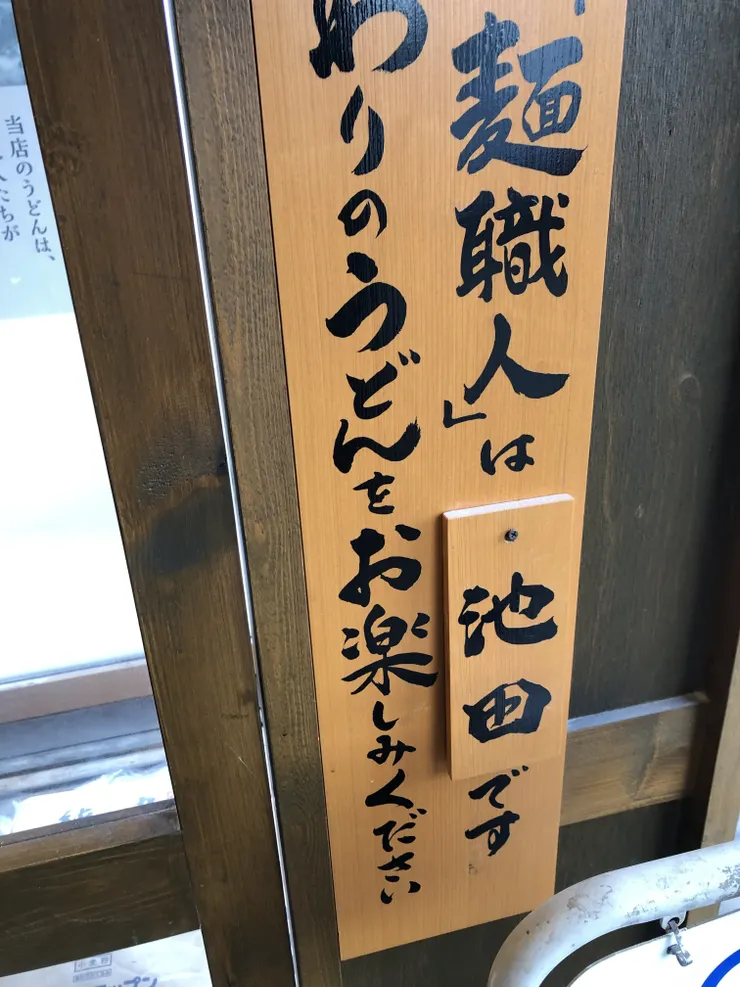 麺職人」は池田です
わりのうどんをお楽しみください
当店のうどんは、
人たちが